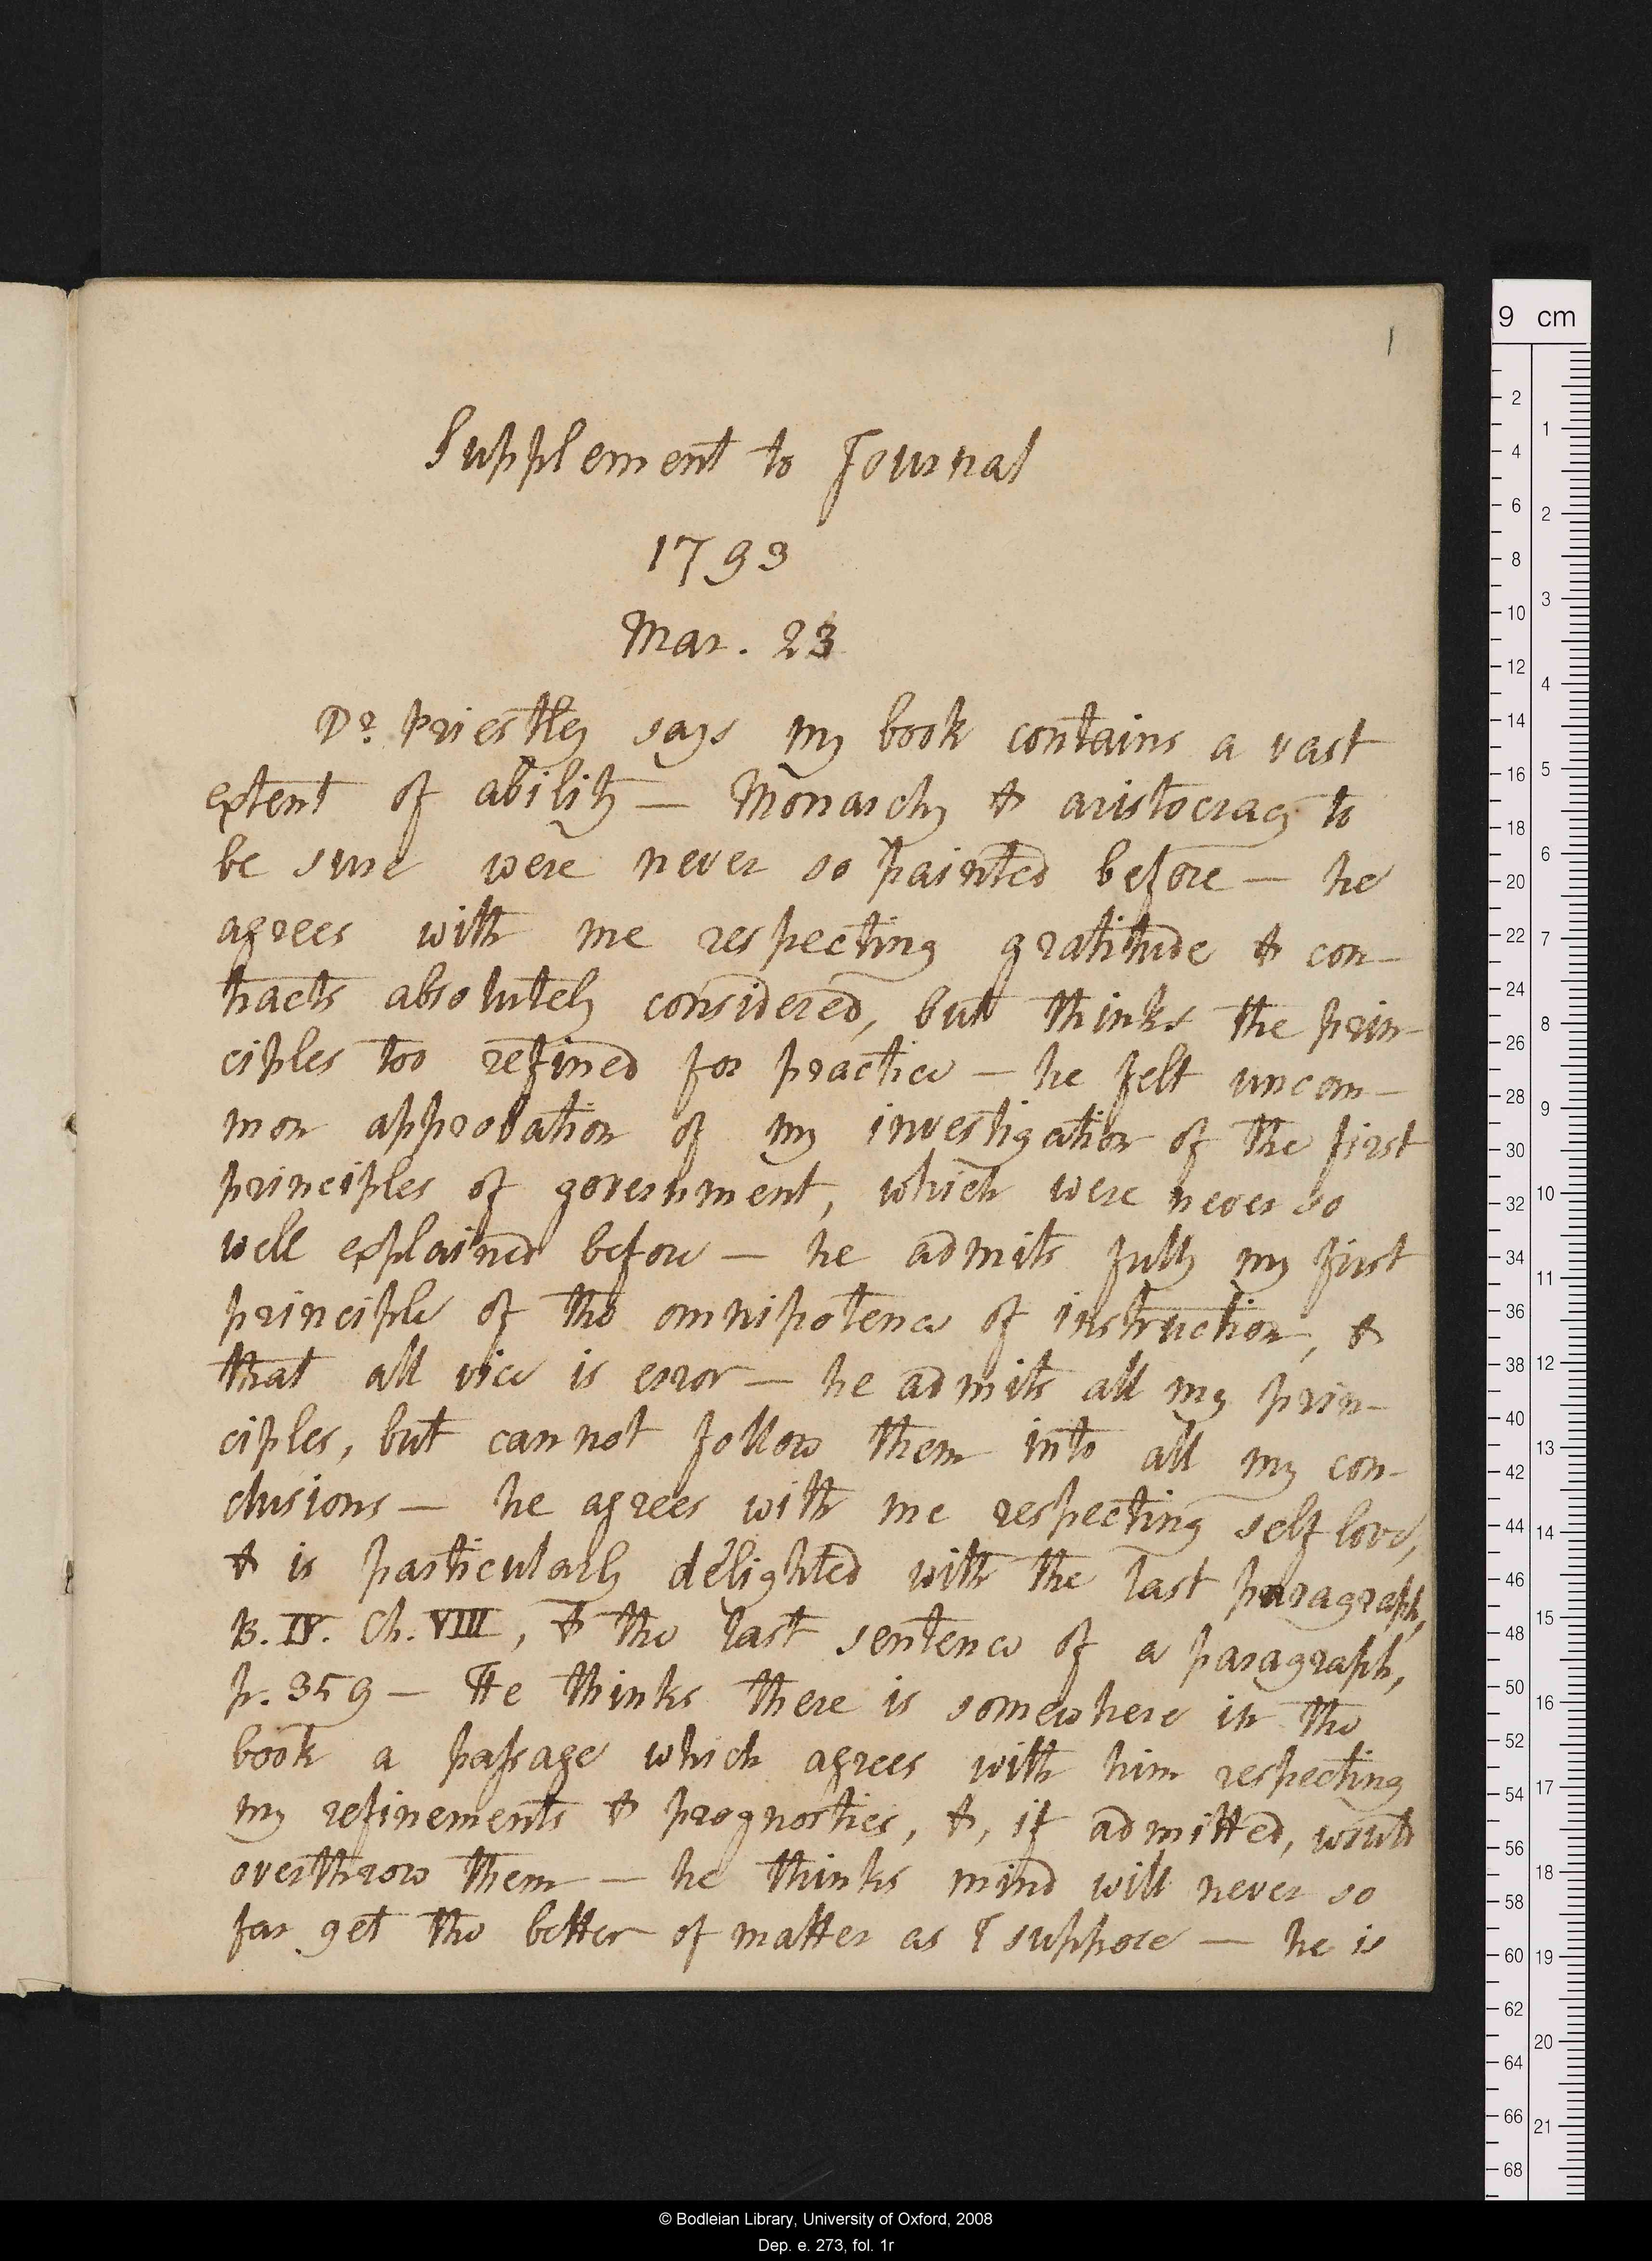 1
Supplement to Journal
1793
Mar. 23
Dr. Priestley says my book contains a vast
extent of ability — Monarchy & aristocracy to
be sure were never so painted before — he
agrees with me respecting gratitude & con-
tracts absolutely considered, but thinks the prin-
ciples too refined for practice — he felt uncom-
mon approbation of my investigation of the first
principles of government, which were never so
well explained before — he admits fully my first
principle of the omnipotence of instruction, &
that all vice is error — he admits all my prin-
ciples, but cannot follow them into all my con-
clusions — he agrees with me respecting self love,
& is particularly delighted with the last paragraph,
B. IV. Ch. VIII, & the last sentence of a paragraph,
p. 359 — He thinks there is somewhere in the
book a passage which agrees with him respecting
my refinements & prognostics, &, if admitted, would
overthrow them — he thinks mind will never so
far get the better of matter as I suppose — he is
9 cm
2
4
6
8
10
12
14
16
18
20
22
24
26
28
30
32
34
36
38
40
42
44
46
48
50
52
54
56
58
60
62
64
66
68
1
2
3
4
5
6
7
8
9
10
11
12
13
14
15
16
17
18
19
20
21
© Bodleian Library, University of Oxford, 2008
Dep. e. 273, fol. 1r